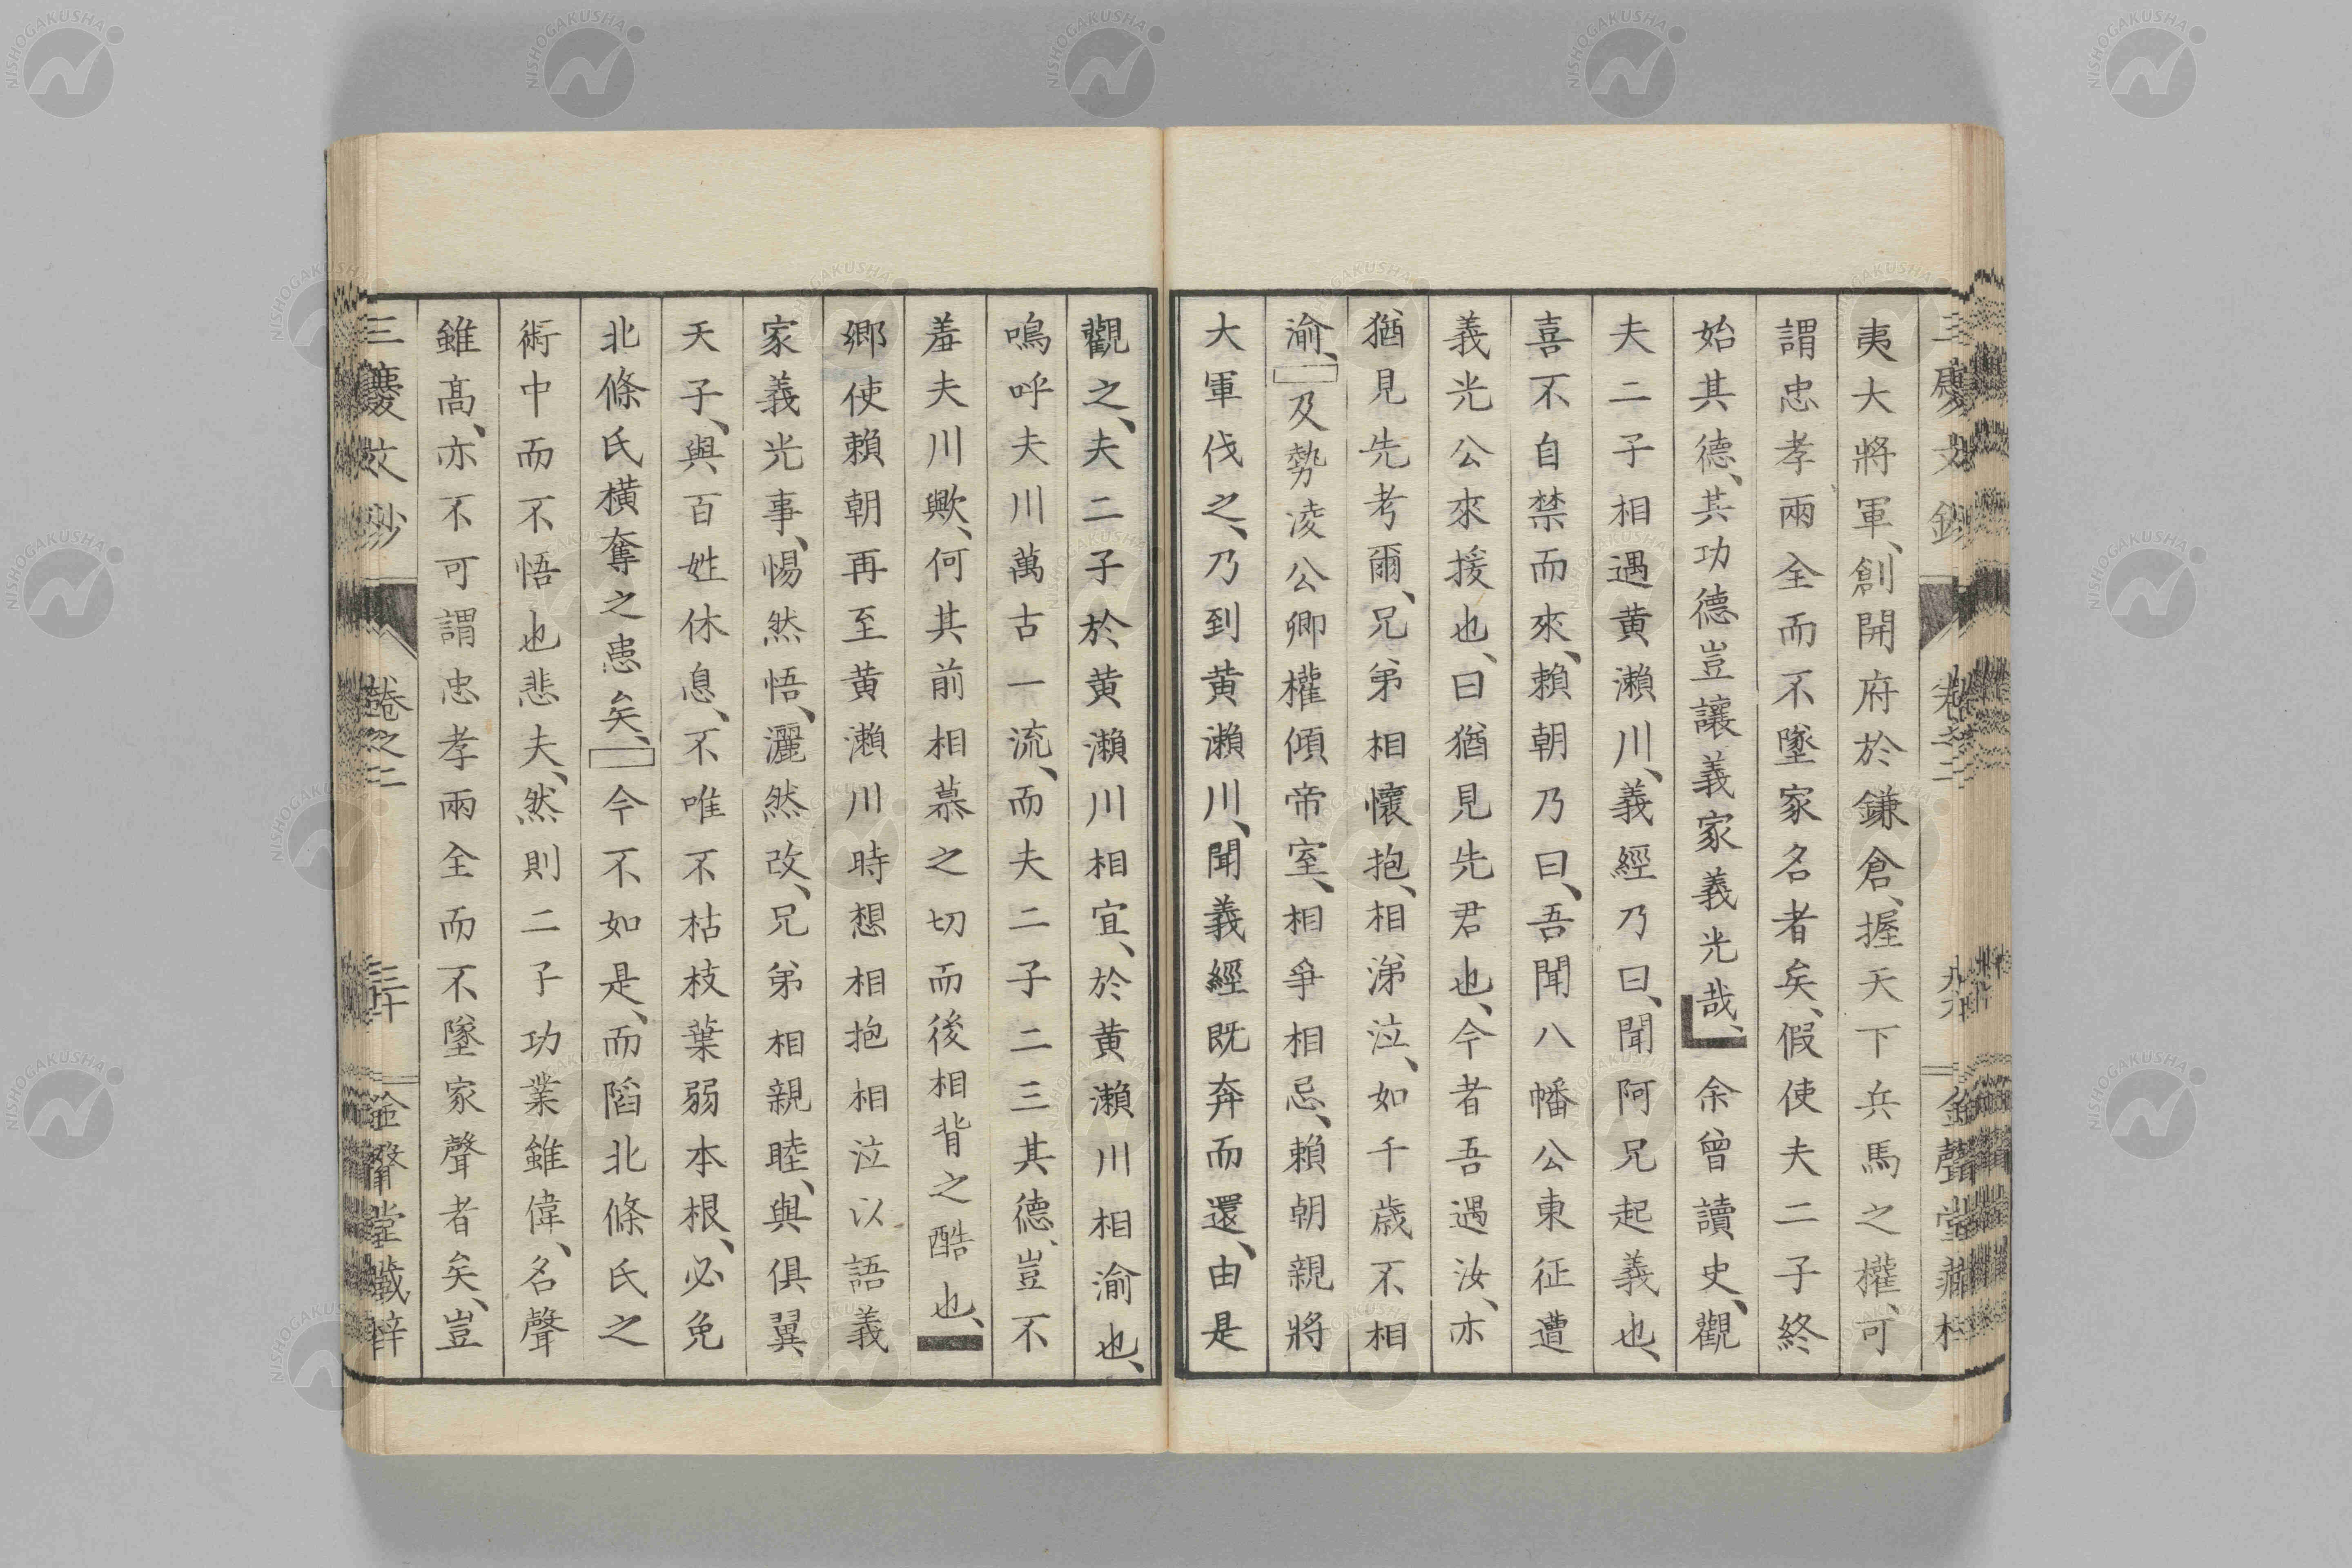 夷大將軍、創開府於鎌倉、握天下兵馬之權、可
謂忠孝兩全而不墜家名者矣、假使夫二子終
始其德、其功德豈讓義家義光哉、余曾讀史、觀
夫二子相遇黄瀨川、義經乃曰、聞阿兄起義也、
喜不自禁而來、賴朝乃曰、吾聞八幡公東征遭
義光公來援也、曰猶見先君也、今者吾遇汝、亦
猶見先考爾、兄弟相懷抱、相涕泣、如千歳不相
渝、及勢凌公卿權傾帝室、相爭相忌、賴朝親將
大軍伐之、乃到黄瀨川、聞義經既奔而還、由是
觀之、夫二子於黄瀨川相宜、於黄瀨川相渝也、
嗚呼夫川萬古一流、而夫二子二三其德、豈不
羞夫川歟、何其前相慕之切而後相背之酷也、
鄉使賴朝再至黄瀨川時想相抱相泣以語義
家義光事、惕然悟、灑然改、兄弟相親睦、與俱翼
天子、與百姓休息、不唯不枯枝葉弱本根、必免
北條氏橫奪之患矣、今不如是、而陷北條氏之
術中而不悟也悲夫、然則二子功業雖偉、名聲
雖高、亦不可謂忠孝兩全而不墜家聲者矣、豈
三慶文鈔 卷之二 三十 金聲堂藏梓
NISHOGAKUSHA